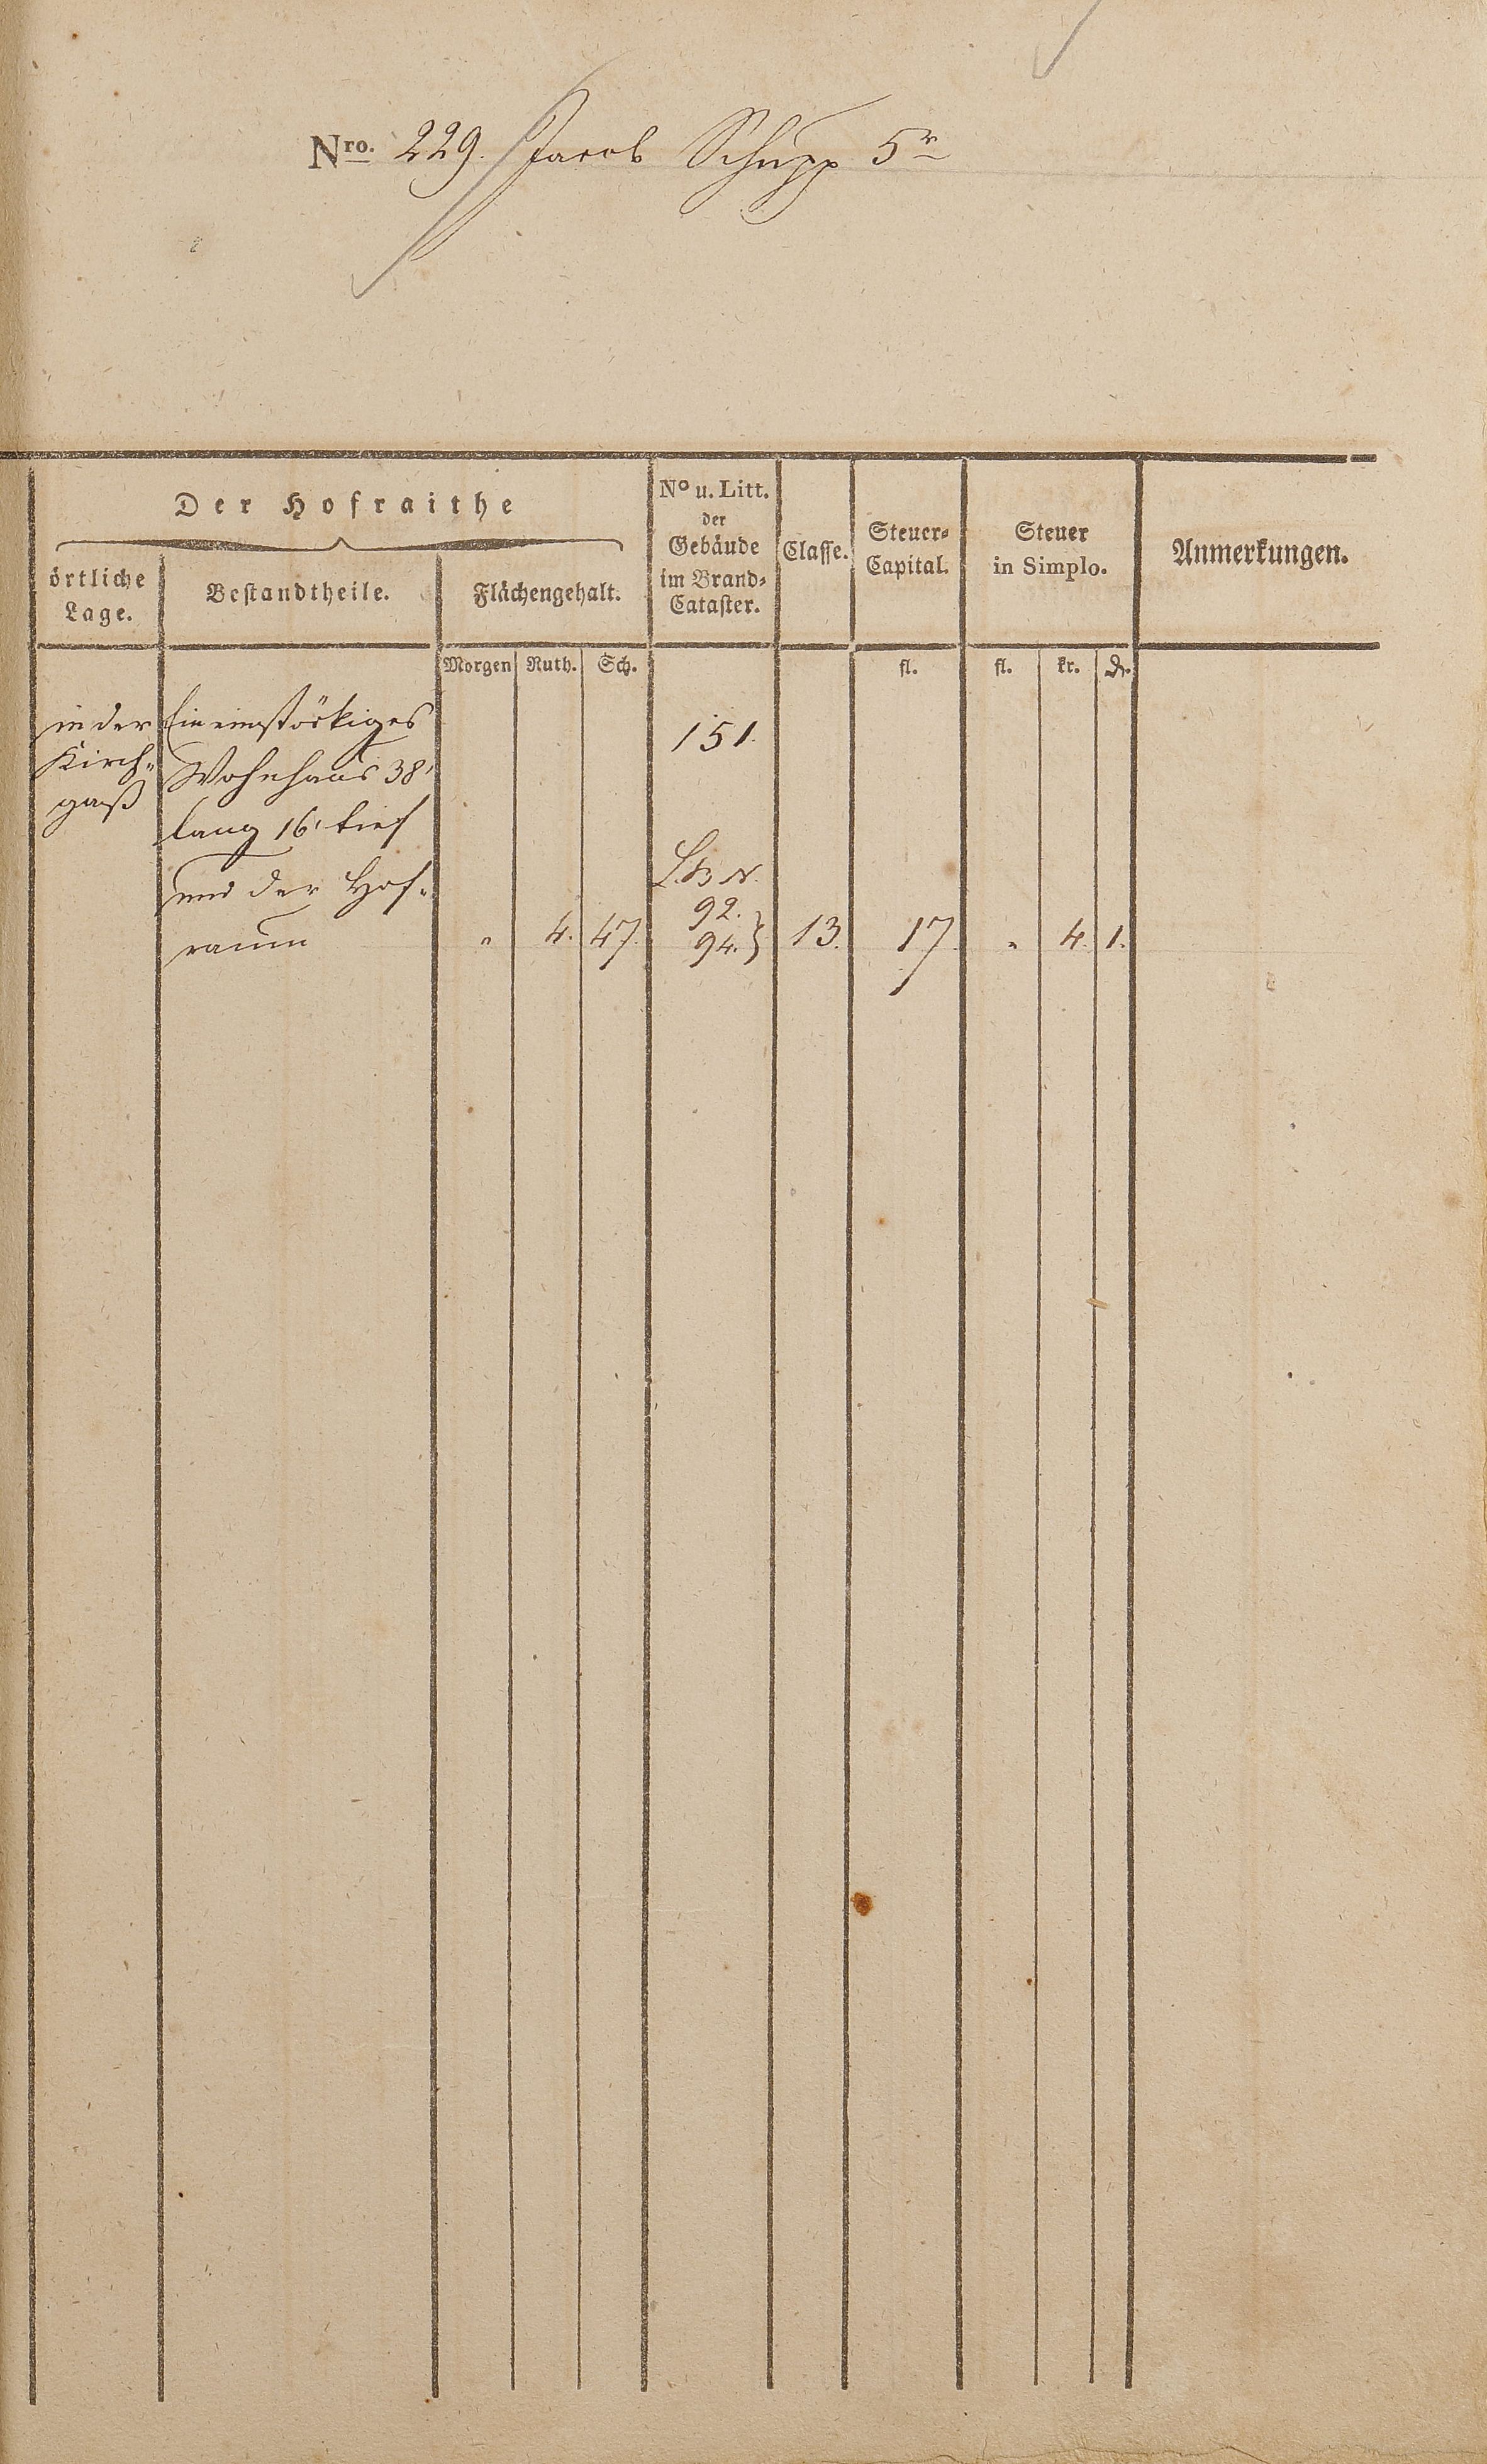 Nro. 229. Jacob Schupp 5r
Der Hofraithe
örtliche
Lage.
Bestandtheile.
Flächengehalt.
No u. Litt.
der
Gebäude
im Brand-
Cataster.
Classe.
Steuer-
Capital.
Steuer
in Simplo.
Anmerkungen.
Morgen Ruth. Sch.
fl.
fl. kr. ₰.
in der
Kirch-
gaß
Ein einstöckiges
Wohnhaus 38'
lang 16' tief
und der Hof-
raum
151.
L. B. N.
92.
" 4. 47. 94. } 13. 17. " 4. 1.